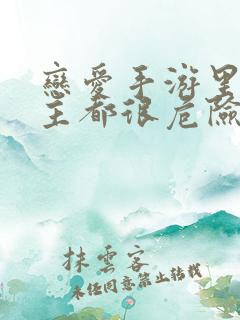 戀愛手游里
主都很危險
抹雲客
未經同意禁止轉載